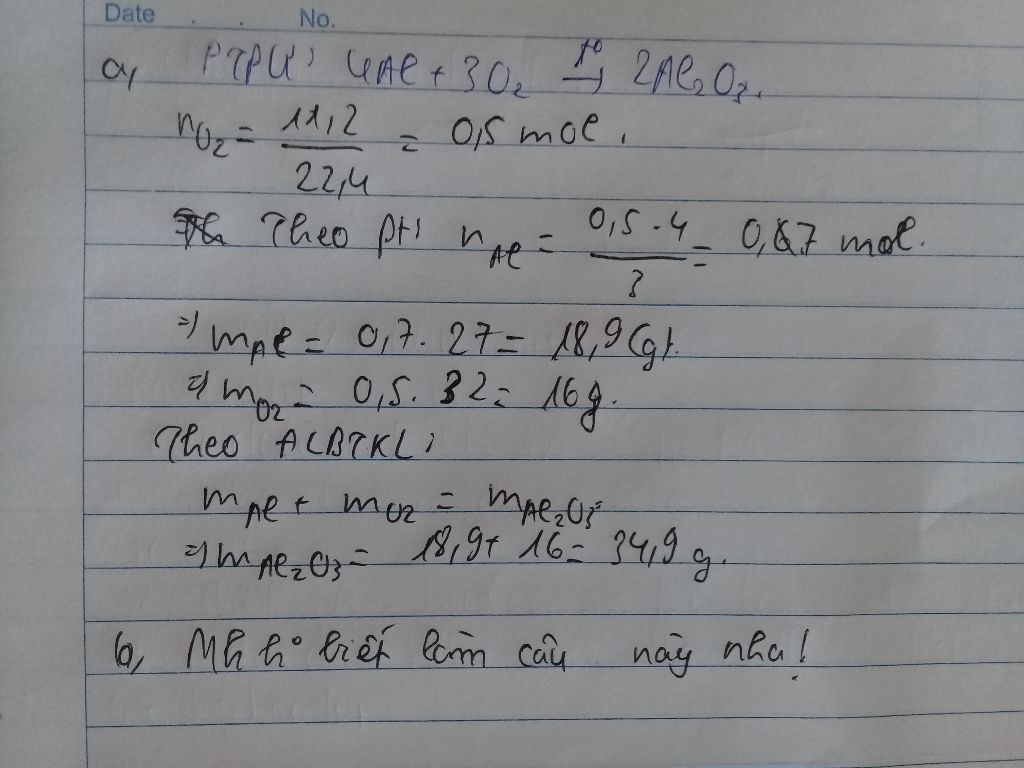 Date . . No.
a, PTPƯ: 4Al + 3O₂ t°→ 2Al₂O₃.
nO₂ = 11,2/22,4 = 0,5 mol.
Theo pt: nAl = 0,5.4/3 = 0,67 mol.
=) mAl = 0,7. 27 = 18,9 (g).
=) mO₂ = 0,5. 32 = 16 g.
Theo ĐLBTKL:
mAl + mO₂ = mAl₂O₃
=) mAl₂O₃ = 18,9 + 16 = 34,9 g.
b, Mk k° biết làm câu này nha!